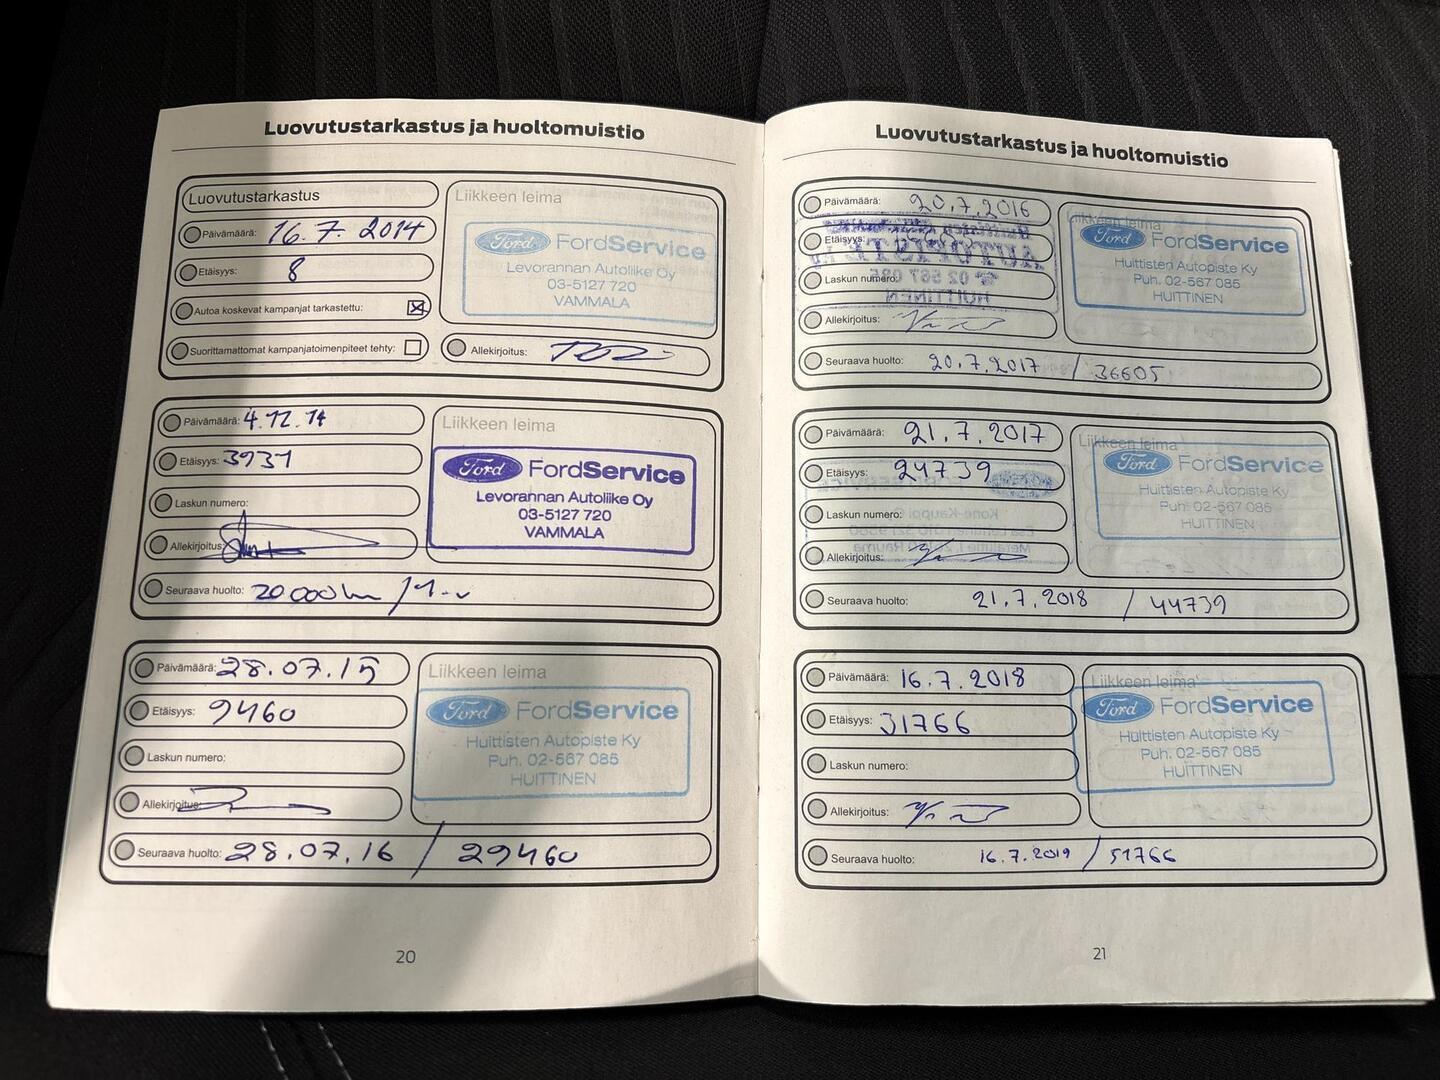 Luovutustarkastus ja huoltomuistio
Luovutustarkastus
Päivämäärä: 16.7.2014
Etäisyys: 8
Autoa koskevat kampanjat tarkastettu:
Suorittamattomat kampanjatoimenpiteet tehty:
Liikkeen leima
Ford FordService
Levorannan Autoliike Oy
03-5127 720
VAMMALA
Allekirjoitus:
Päivämäärä: 4.12.14
Etäisyys: 3931
Laskun numero:
Allekirjoitus:
Liikkeen leima
Ford FordService
Levorannan Autoliike Oy
03-5127 720
VAMMALA
Seuraava huolto: 20000km /
Päivämäärä: 28.07.15
Etäisyys: 9460
Laskun numero:
Allekirjoitus:
Liikkeen leima
Ford FordService
Huittisten Autopiste Ky
Puh. 02-567 085
HUITTINEN
Seuraava huolto: 28.07.16 / 29460
20
Luovutustarkastus ja huoltomuistio
Päivämäärä: 20.7.2016
Etäisyys:
Laskun numero:
Allekirjoitus:
Liikkeen leima
Ford FordService
Huittisten Autopiste Ky
Puh. 02-567 085
HUITTINEN
Seuraava huolto: 20.7.2017 / 36605
Päivämäärä: 21.7.2017
Etäisyys: 24739
Laskun numero:
Allekirjoitus:
Liikkeen leima
Ford FordService
Huittisten Autopiste Ky
Puh. 02-567 085
HUITTINEN
Seuraava huolto: 21.7.2018 / 44739
Päivämäärä: 16.7.2018
Etäisyys: 31766
Laskun numero:
Allekirjoitus:
Liikkeen leima
Ford FordService
Huittisten Autopiste Ky
Puh. 02-567 085
HUITTINEN
Seuraava huolto: 16.7.2019 / 51766
21